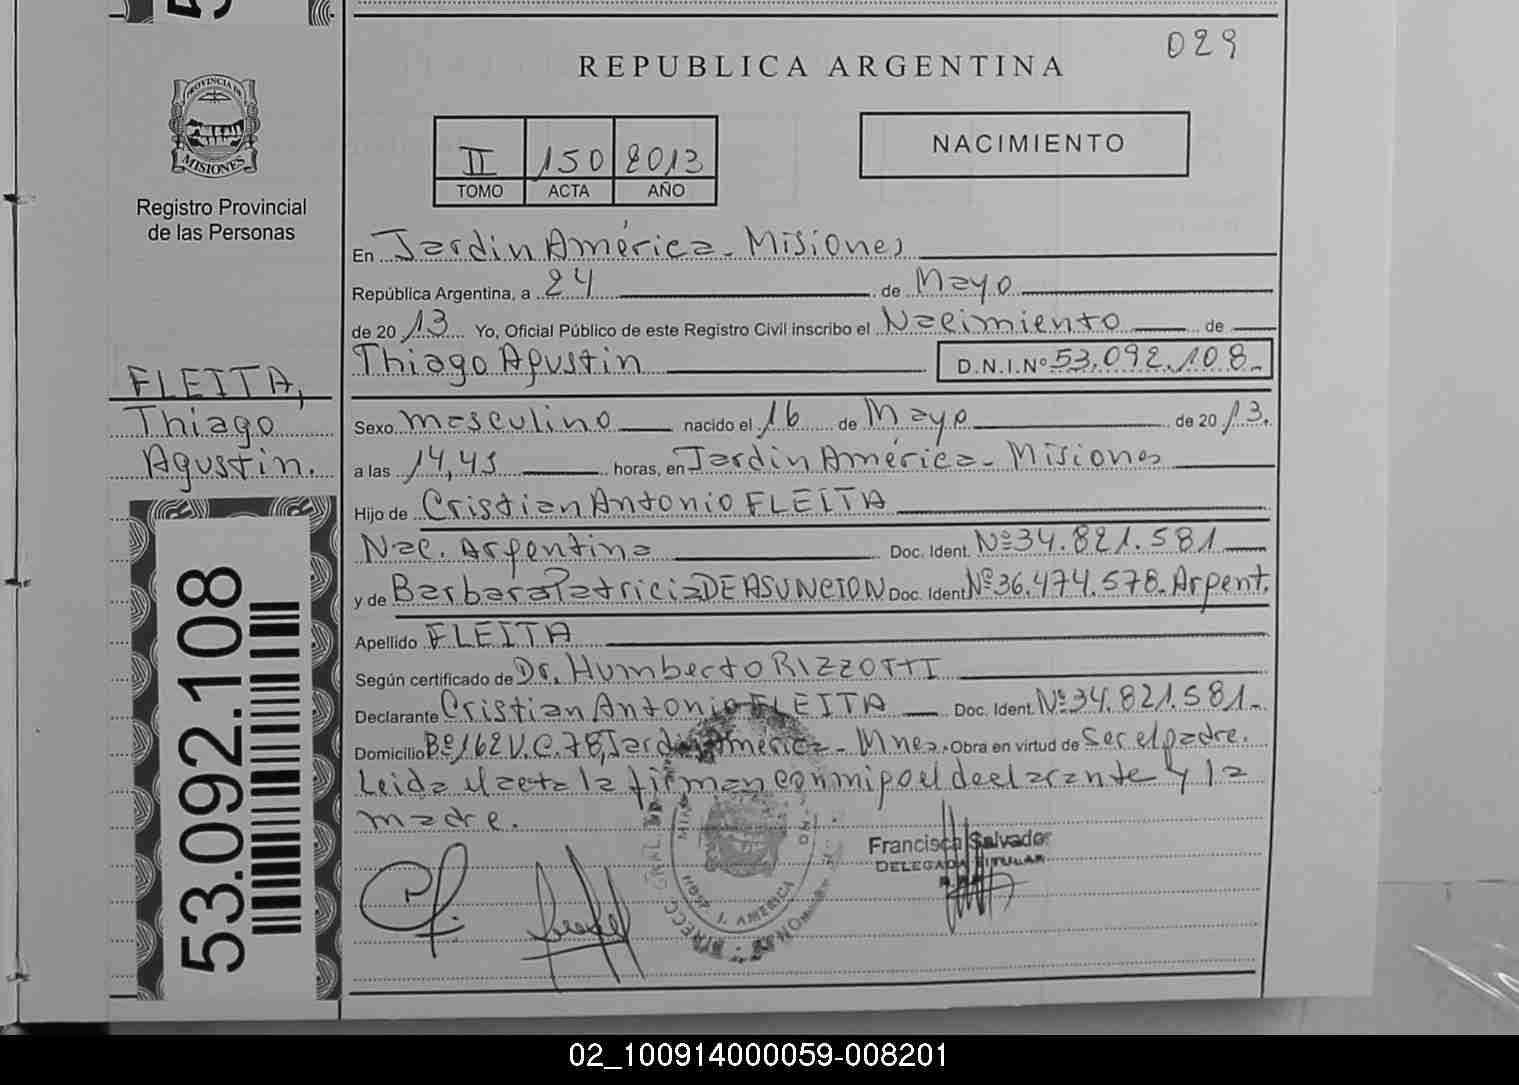 029
REPUBLICA ARGENTINA
PROVINCIA DE
MISIONES
Registro Provincial
de las Personas
II 150 2013
TOMO ACTA AÑO
NACIMIENTO
En Jardin América - Misiones
República Argentina, a 24 de Mayo
de 20 13 Yo, Oficial Público de este Registro Civil inscribo el Nacimiento de
Thiago Agustin D.N.I.Nº 53.092.108-
FLEITA,
Thiago
Agustin.
Sexo masculino nacido el 16 de Mayo de 20 13.
a las 14,45 horas, en Jardin América - Misiones
Hijo de Cristian Antonio FLEITA
Nac. Argentina Doc. Ident. Nº 34.821.581
y de Barbara Patricia DE ASUNCION Doc. Ident. Nº 36.474.578. Argent.
Apellido FLEITA
Según certificado de Dr. Humberto RIZZOTTI
Declarante Cristian Antonio FLEITA Doc. Ident. Nº 34.821.581-
Domicilio Bº 162 V.C. 78, Jardin América - Mnes. Obra en virtud de ser el padre.
Leida el acta la firman conmigo el declarante y la
madre.
53.092.108
Francisca Salvador
DELEGADA TITULAR
AMERICA
02_100914000059-008201